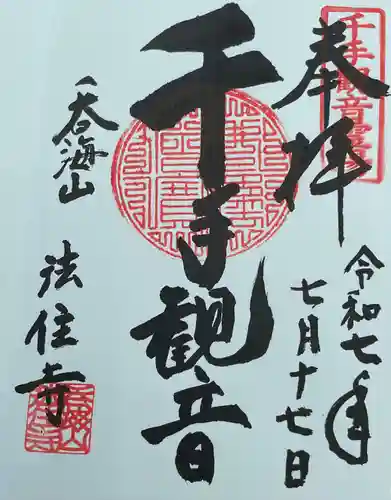 奉拝
千手観音霊場
令和七年
七月十七日
千手観音
吞海山
法住寺